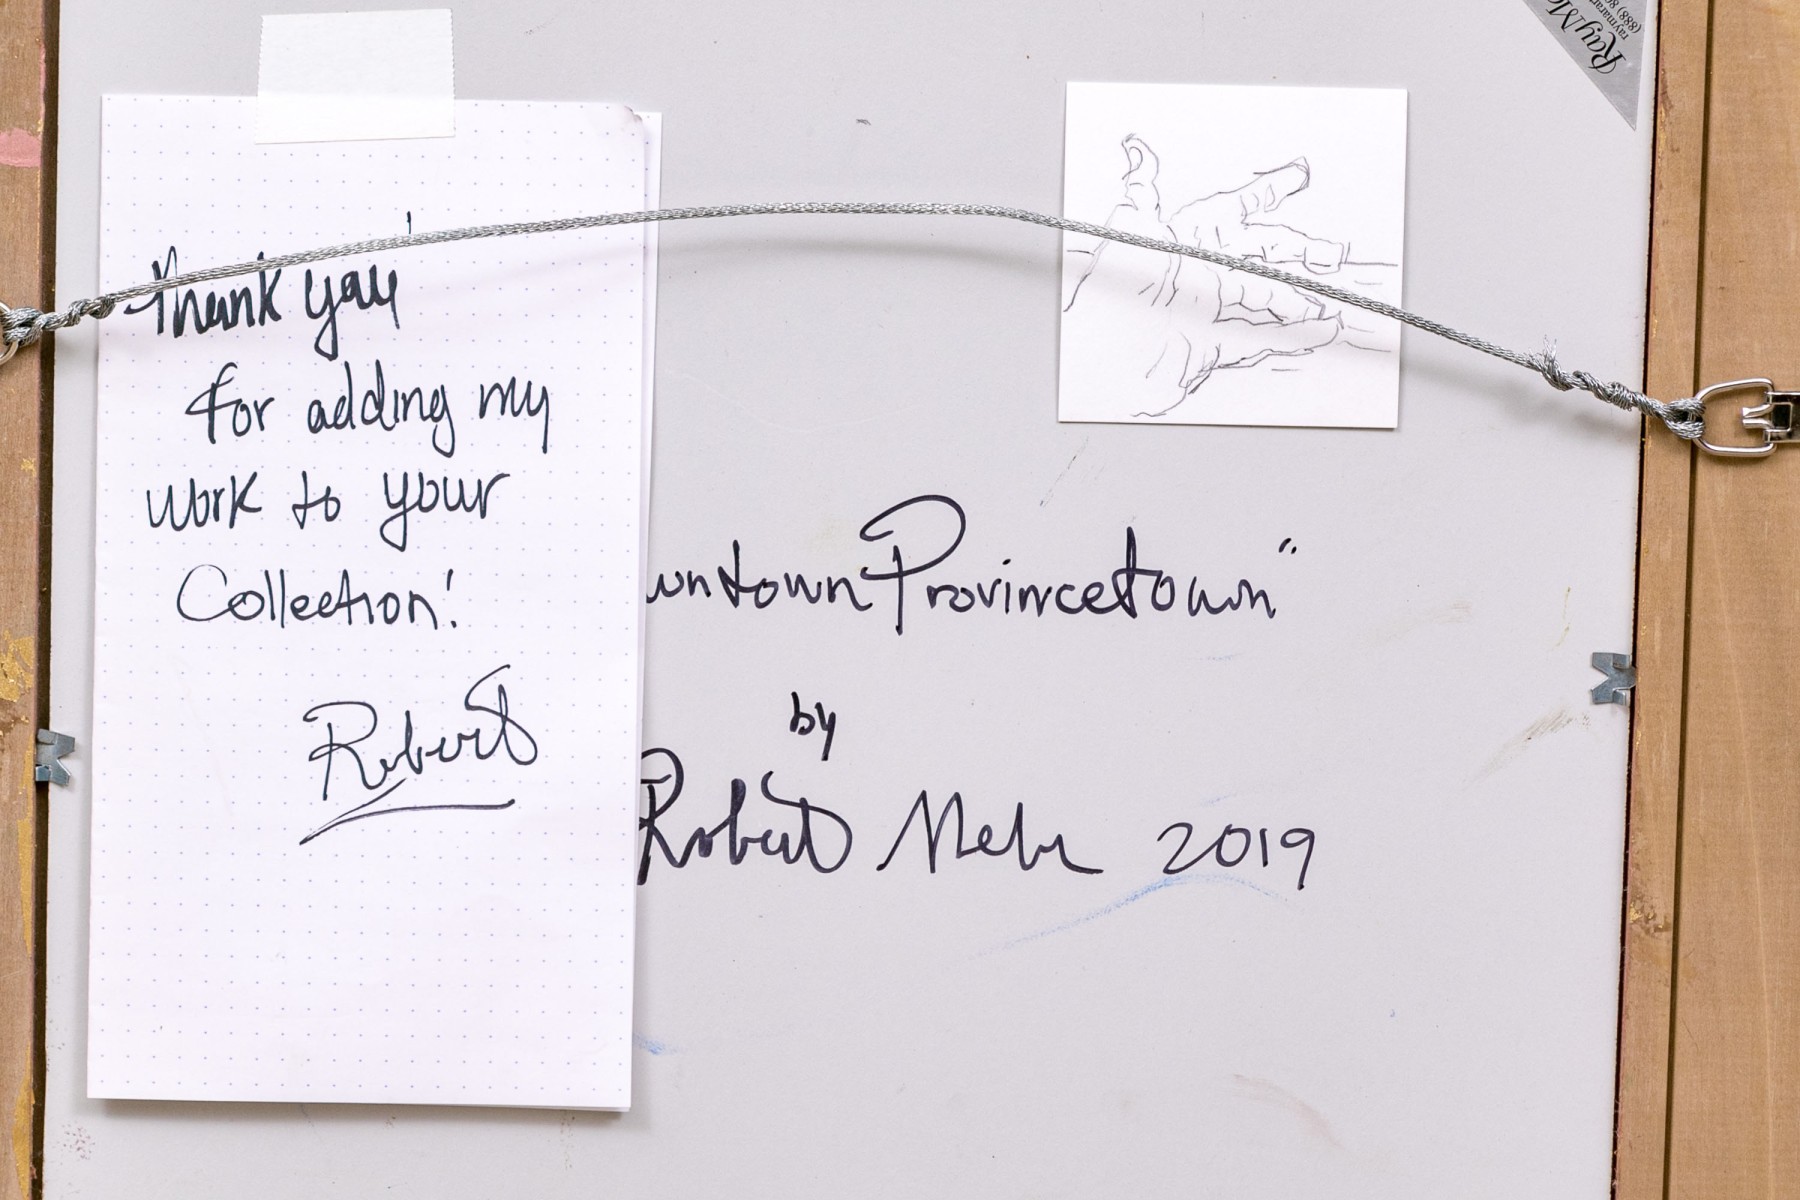 Thank you
for adding my
work to your
Collection!
Robert
wntown Provincetown"
by
Robert 2019